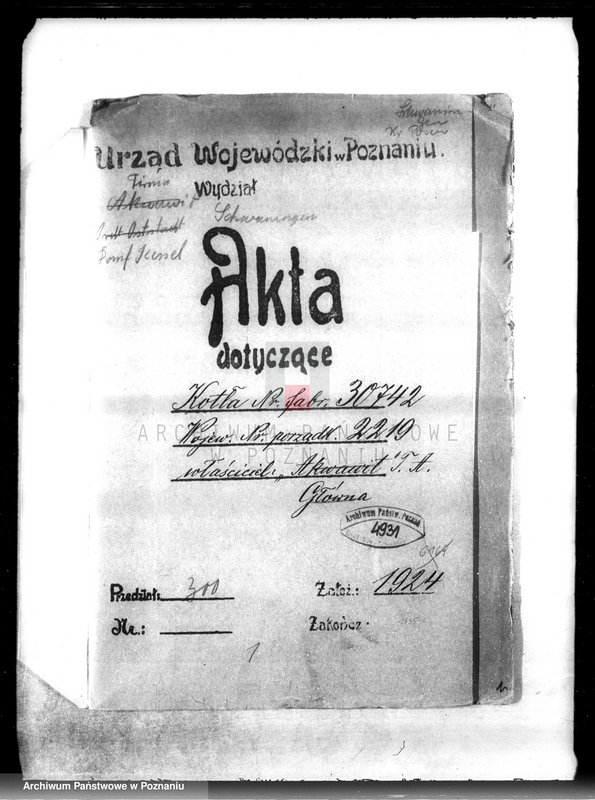 Urząd Wojewódzki w Poznaniu.
Wydział
Firma
Akwawit
Schwaningen
Akta
dotyczące
Kotła Nr. fabr. 30742
Wojew. Nr. porządk. 2219
właściciel: „Akwawit T. A.
Główna
Archiwum Państw. Poznań
4931
Przedział: 300
Założ.: 1924
Nr.:
Zakończ.
1
ARCHIWUM PAŃSTWOWE
W POZNANIU
Archiwum Państwowe w Poznaniu